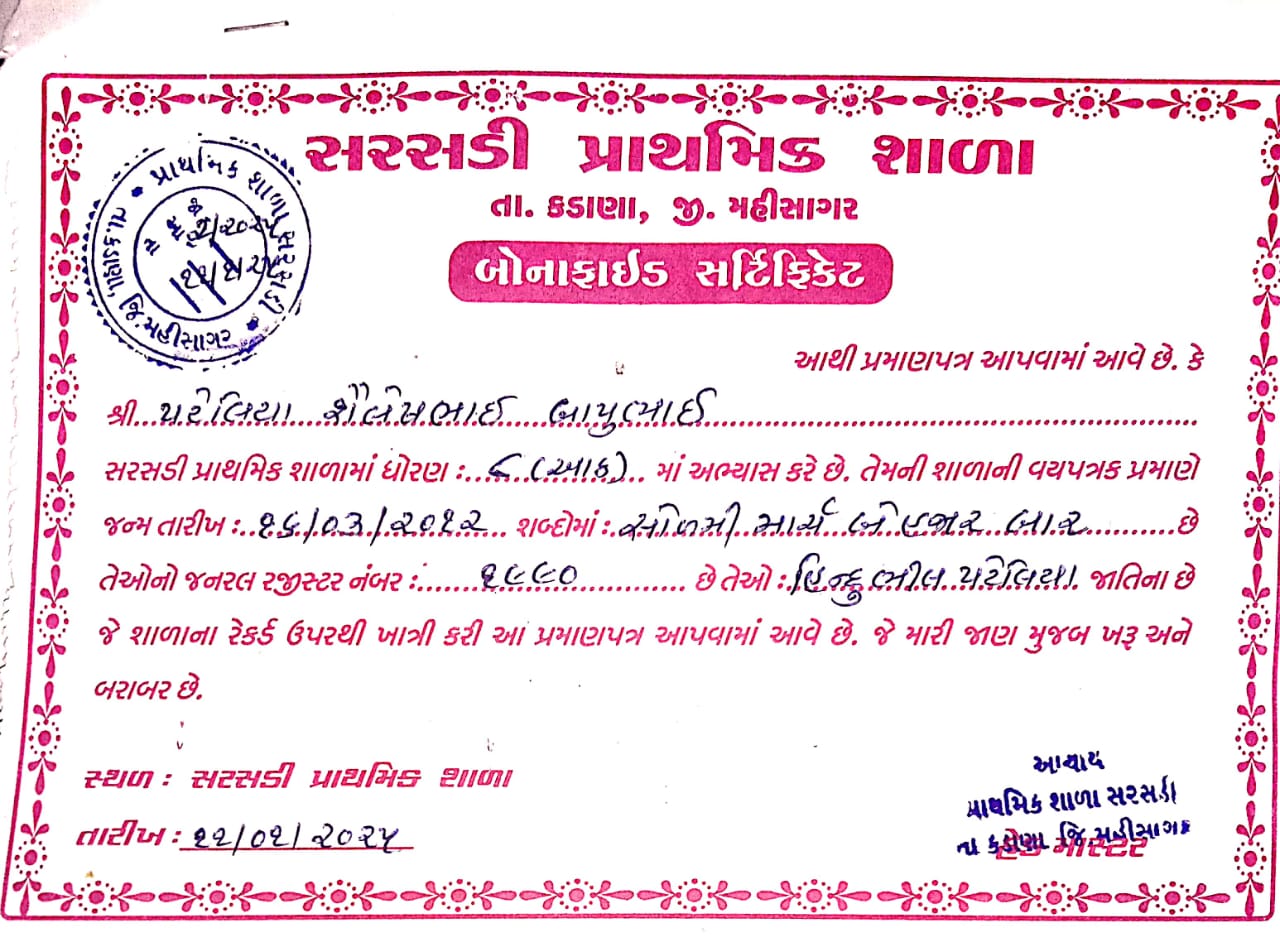 સરસડી પ્રાથમિક શાળા
તા. કડાણા, જી. મહીસાગર
બોનાફાઇડ સર્ટિફિકેટ
પ્રાથમિક શાળા સરસડી
તા.કડાણા જી.મહીસાગર
આથી પ્રમાણપત્ર આપવામાં આવે છે. કે
શ્રી પટેલિયા શૈલેષભાઈ બાપુભાઈ
સરસડી પ્રાથમિક શાળામાં ધોરણ : ૮ (આઠ) માં અભ્યાસ કરે છે. તેમની શાળાની વયપત્રક પ્રમાણે
જન્મ તારીખ : ૧૬/૦૩/૨૦૧૨ શબ્દોમાં : સોળમી માર્ચ બેહજાર બાર છે
તેઓનો જનરલ રજીસ્ટર નંબર : ૧૯૯૦ છે તેઓ : હિન્દુ ભીલ પટેલિયા જાતિના છે
જે શાળાના રેકર્ડ ઉપરથી ખાત્રી કરી આ પ્રમાણપત્ર આપવામાં આવે છે. જે મારી જાણ મુજબ ખરૂ અને
બરાબર છે.
સ્થળ : સરસડી પ્રાથમિક શાળા
તારીખ : ૨૨/૦૧/૨૦૨૫
પ્રાથમિક શાળા સરસડી
તા કડાણા જિ.મહીસાગર
હેડ માસ્ટર